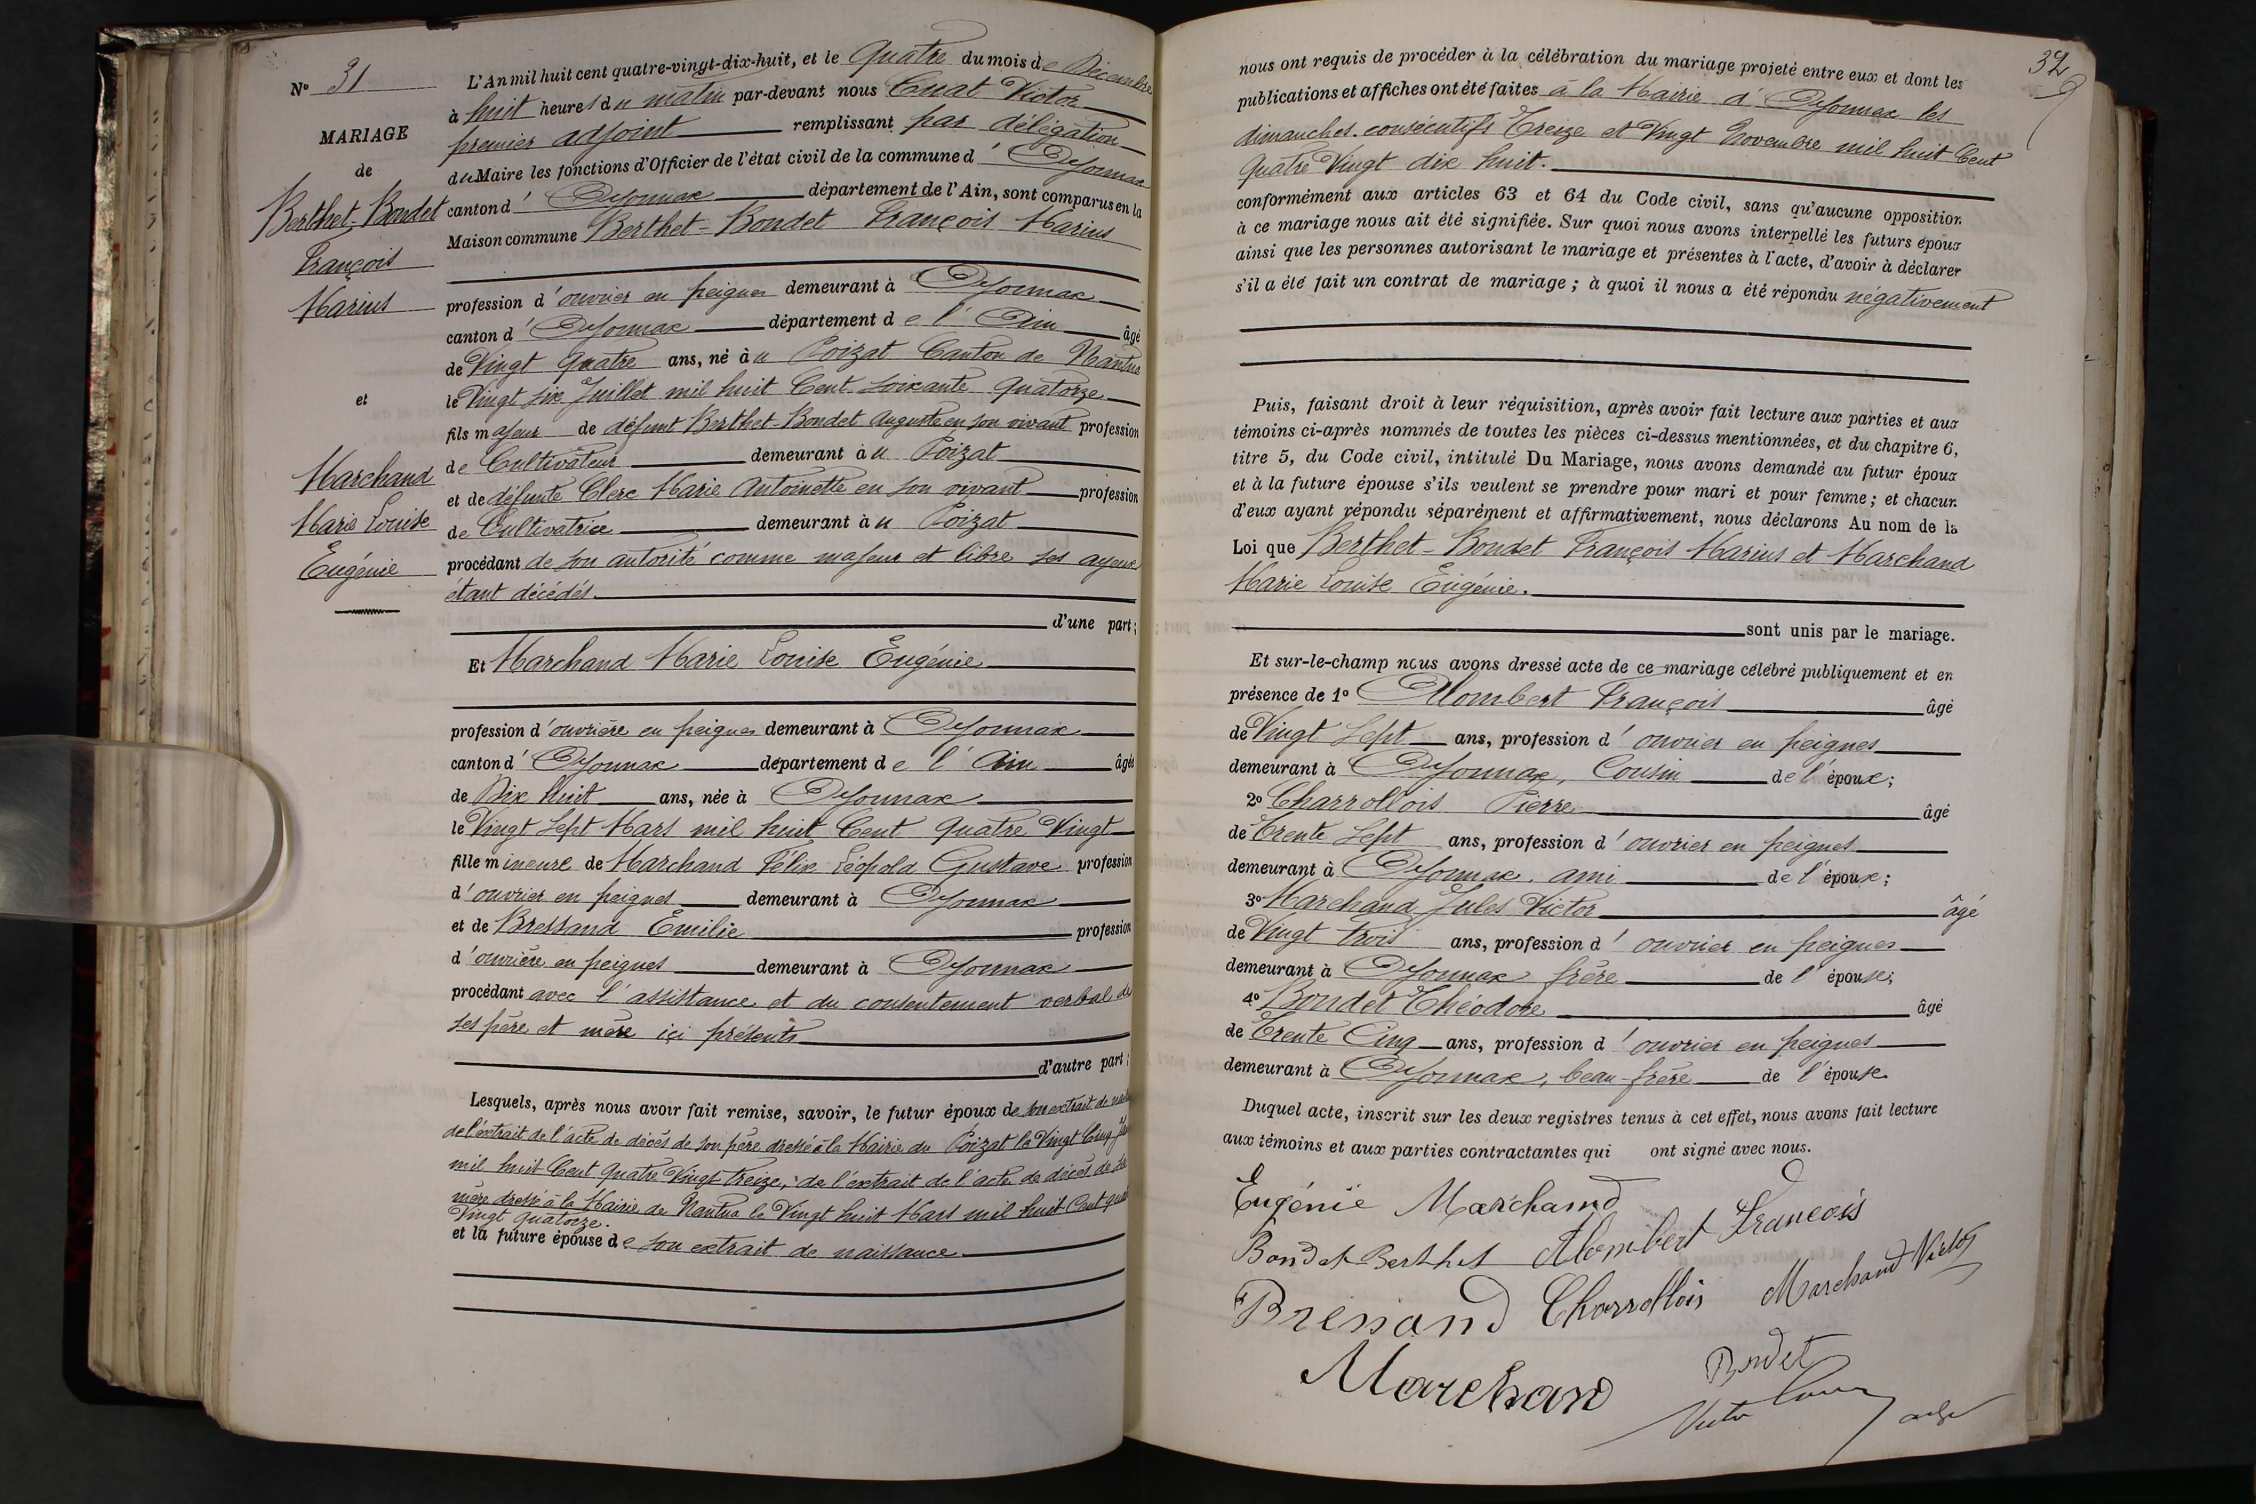 N° 31
MARIAGE
de
Berthet-Bondet
François
Marius
et
Marchand
Marie Louise
Eugénie
L'An mil huit cent quatre-vingt-dix-huit, et le Quatre du mois de Décembre
à huit heures du matin par-devant nous Cuat Victor
premier adjoint remplissant par délégation
du Maire les fonctions d'Officier de l'état civil de la commune d'Oyonnax
canton d'Oyonnax département de l'Ain, sont comparus en la
Maison commune Berthet-Bondet François Marius
profession d'ouvrier en peignes demeurant à Oyonnax
canton d'Oyonnax département de l'Ain âgé
de Vingt quatre ans, né au Poizat Canton de Nantua
le Vingt six Juillet mil huit Cent soixante quatorze
fils majeur de défunt Berthet-Bondet Auguste en son vivant profession
de Cultivateur demeurant au Poizat
et de défunte Clerc Marie Antoinette en son vivant profession
de Cultivatrice demeurant au Poizat
procédant de son autorité comme majeur et libre ses ayeux
étant décédés.
d'une part;
Et Marchand Marie Louise Eugénie
profession d'ouvrière en peignes demeurant à Oyonnax
canton d'Oyonnax département de l'Ain âgée
de Dix huit ans, née à Oyonnax
le Vingt sept Mars mil huit Cent quatre Vingt
fille mineure de Marchand Félix Léopold Gustave profession
d'ouvrier en peignes demeurant à Oyonnax
et de Bressand Emilie profession
d'ouvrière en peignes demeurant à Oyonnax
procédant avec l'assistance et du consentement verbal de
ses père et mère içi présents
d'autre part;
Lesquels, après nous avoir fait remise, savoir, le futur époux de son extrait de
de l'extrait de l'acte de décès de son père dressé à la Mairie du Poizat le Vingt Cinq
mil huit Cent quatre Vingt treize, de l'extrait de l'acte de décès de sa
mère dressé à la Mairie de Nantua le Vingt huit Mars mil huit Cent quatre
Vingt quatorze.
et la future épouse de son extrait de naissance
32
nous ont requis de procéder à la célébration du mariage projeté entre eux et dont les
publications et affiches ont été faites à la Mairie d'Oyonnax les
dimanches consécutifs Treize et Vingt Novembre mil huit Cent
quatre Vingt dix huit.
conformément aux articles 63 et 64 du Code civil, sans qu'aucune opposition
à ce mariage nous ait été signifiée. Sur quoi nous avons interpellé les futurs époux
ainsi que les personnes autorisant le mariage et présentes à l'acte, d'avoir à déclarer
s'il a été fait un contrat de mariage; à quoi il nous a été répondu négativement
Puis, faisant droit à leur réquisition, après avoir fait lecture aux parties et aux
témoins ci-après nommés de toutes les pièces ci-dessus mentionnées, et du chapitre 6,
titre 5, du Code civil, intitulé Du Mariage, nous avons demandé au futur époux
et à la future épouse s'ils veulent se prendre pour mari et pour femme; et chacun
d'eux ayant répondu séparément et affirmativement, nous déclarons Au nom de la
Loi que Berthet-Bondet François Marius et Marchand
Marie Louise Eugénie.
sont unis par le mariage.
Et sur-le-champ nous avons dressé acte de ce mariage célébré publiquement et en
présence de 1° Alombert François âgé
de Vingt Sept ans, profession d'ouvrier en peignes
demeurant à Oyonnax, Cousin de l'époux;
2° Charrollois Pierre âgé
de Trente Sept ans, profession d'ouvrier en peignes
demeurant à Oyonnax, ami de l'époux;
3° Marchand Jules Victor âgé
de Vingt trois ans, profession d'ouvrier en peignes
demeurant à Oyonnax frère de l'épouse;
4° Bondet Théodore âgé
de Trente Cinq ans, profession d'ouvrier en peignes
demeurant à Oyonnax, beau-frère de l'épouse
Duquel acte, inscrit sur les deux registres tenus à cet effet, nous avons fait lecture
aux témoins et aux parties contractantes qui ont signé avec nous.
Eugénie Marchand
Bondet Berthet Alombert François
Bressand Charrollois Marchand Victor
Marchand Bondet